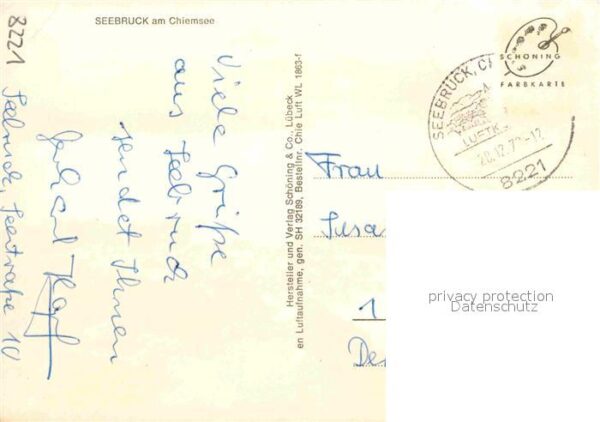 SEEBRUCK am Chiemsee
Viele Grüße
aus Seebruck
sendet Ihnen
8221 Seebruck, Seestraße 10
Hersteller und Verlag Schöning & Co., Lübeck
en Luftaufnahme, gen. SH 32189, Bestellnr. Chie Luft WL 1863-f
SCHÖNING
FARBKARTE
SEEBRUCK, C
LUFTK
20.12.7 -12
8221
Frau
Susa
1
De
privacy protection
Datenschutz